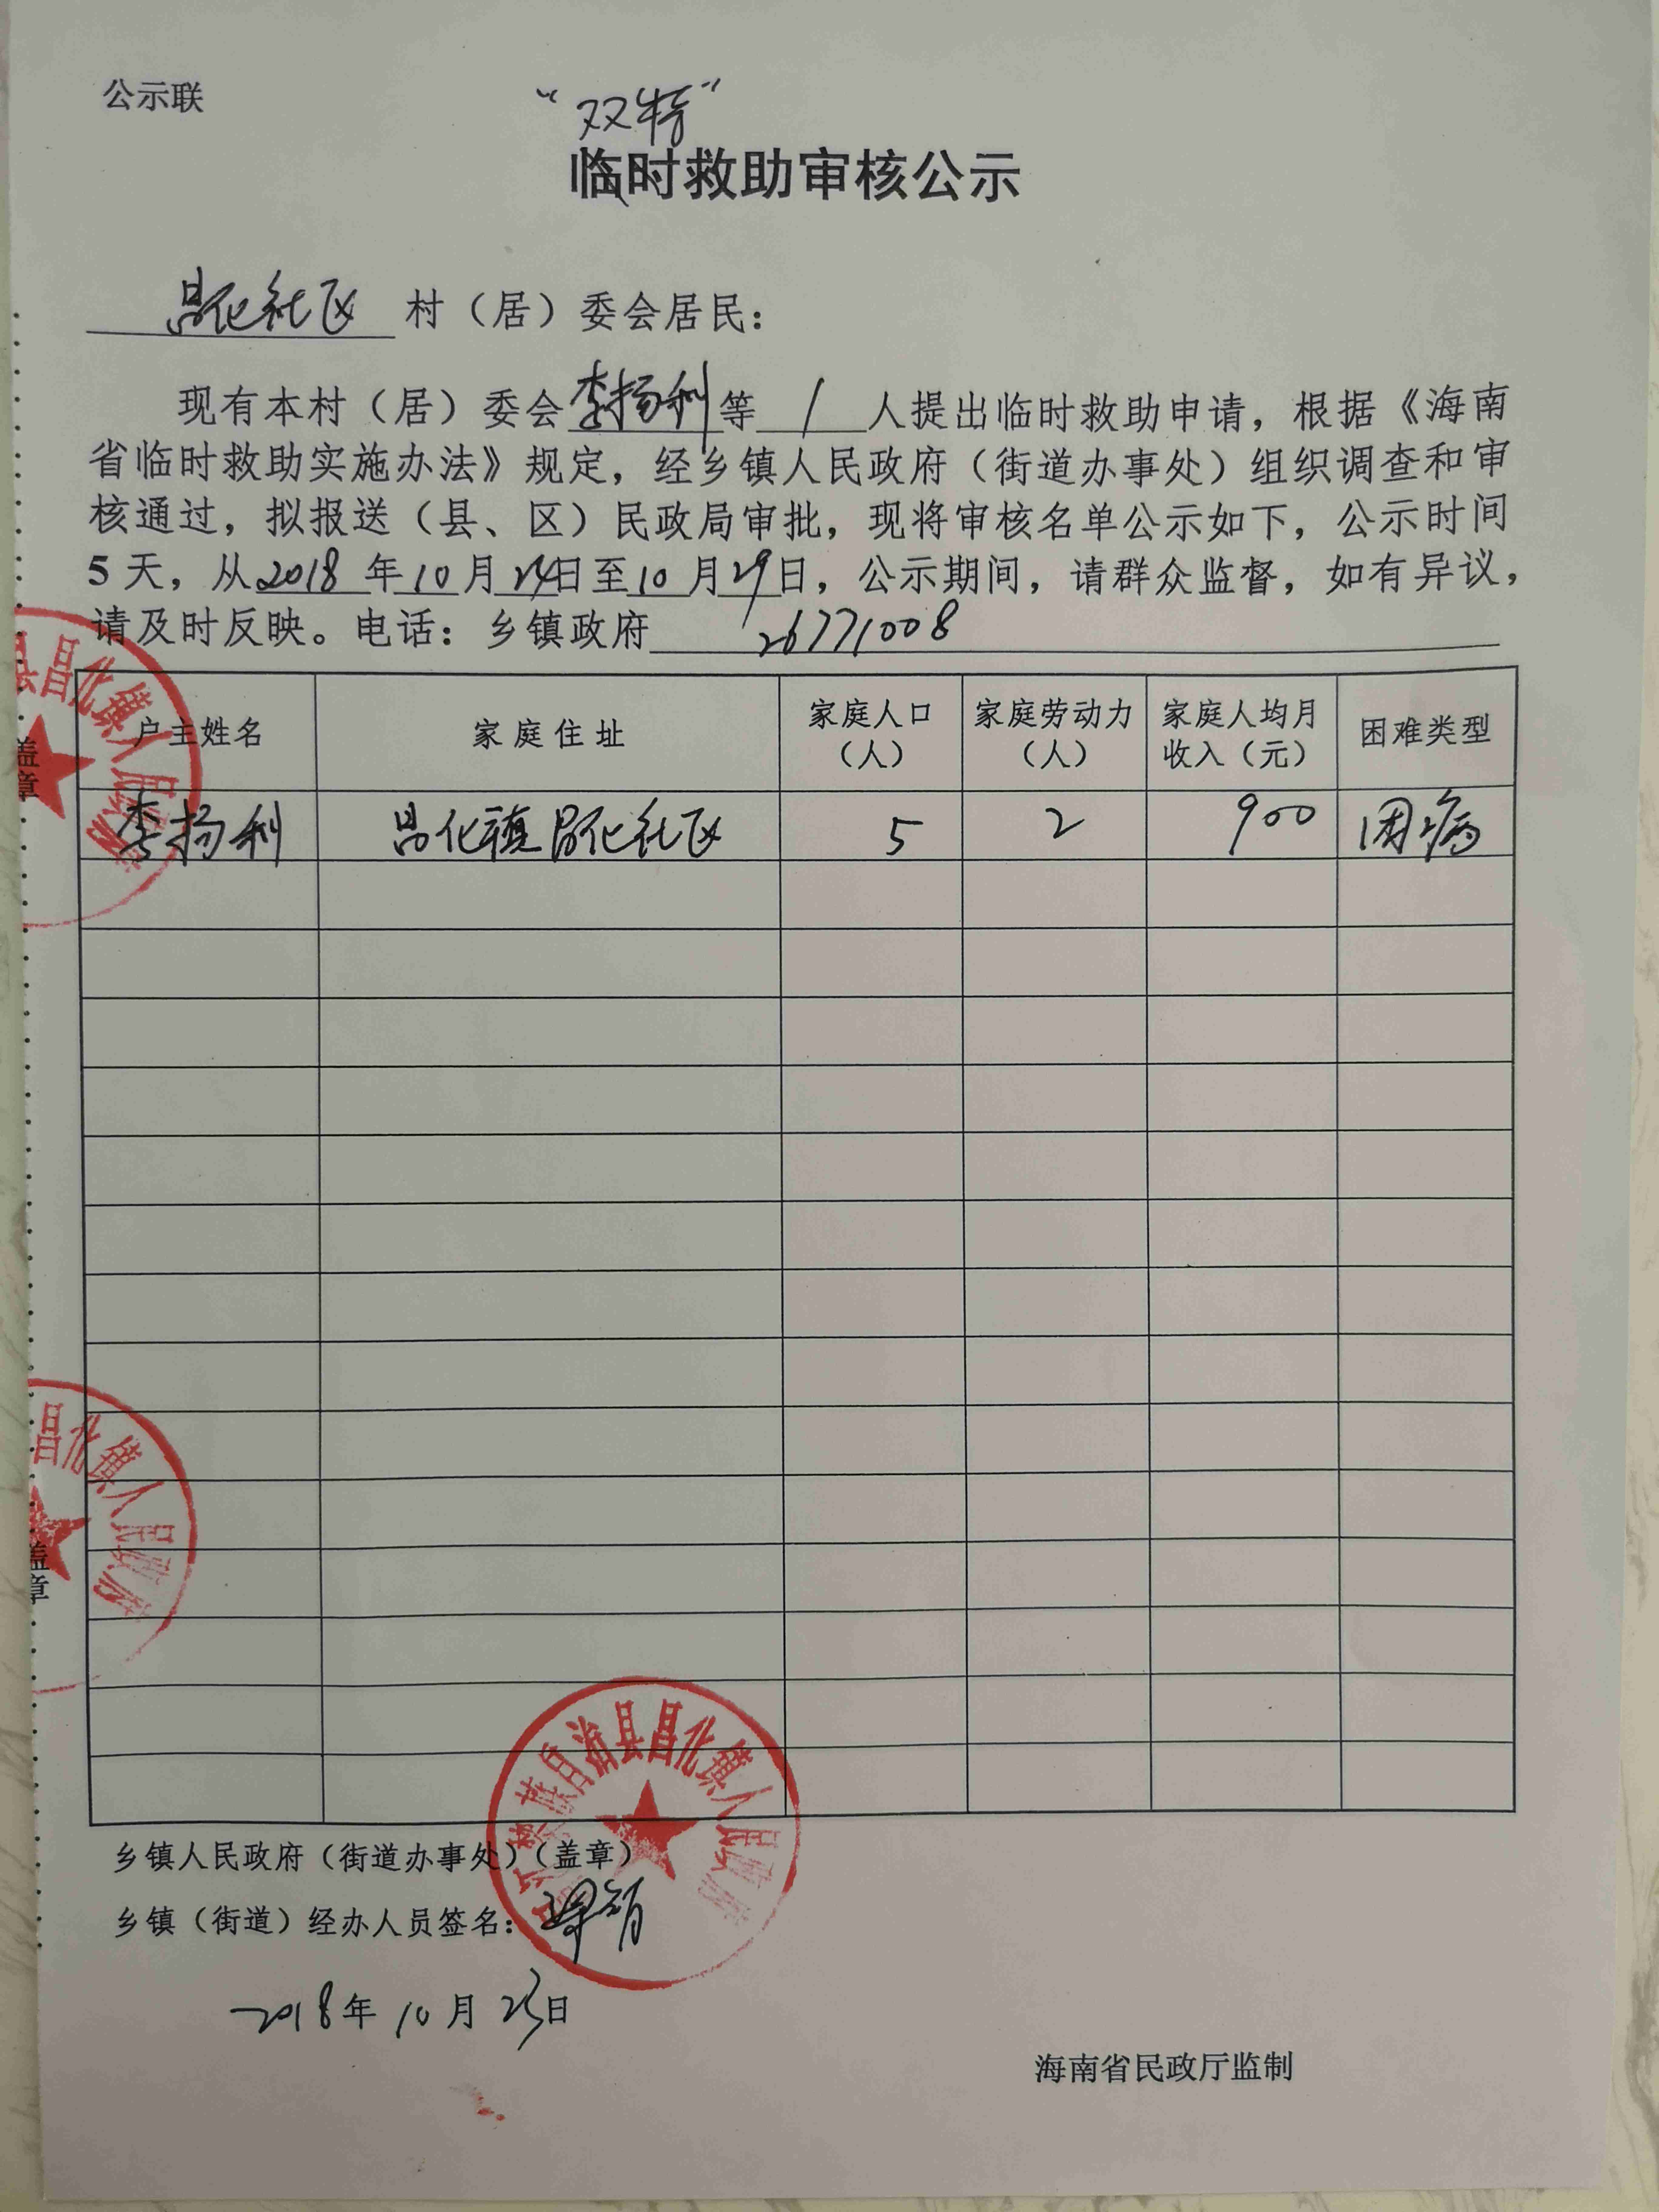 公示联
“双特”
临时救助审核公示
昌化社区 村（居）委会居民：
现有本村（居）委会李扬利等 1 人提出临时救助申请，根据《海南
省临时救助实施办法》规定，经乡镇人民政府（街道办事处）组织调查和审
核通过，拟报送（县、区）民政局审批，现将审核名单公示如下，公示时间
5天，从2018年10月24日至10月29日，公示期间，请群众监督，如有异议，
请及时反映。电话：乡镇政府 26771008
户主姓名 家庭住址 家庭人口（人） 家庭劳动力（人） 家庭人均月收入（元） 困难类型
李扬利 昌化镇昌化社区 5 2 900 因病
县昌化镇人民政府
盖章
昌化镇人民政府
盖章
昌江黎族自治县昌化镇人民政府
乡镇人民政府（街道办事处）（盖章）
乡镇（街道）经办人员签名：
2018年10月23日
海南省民政厅监制